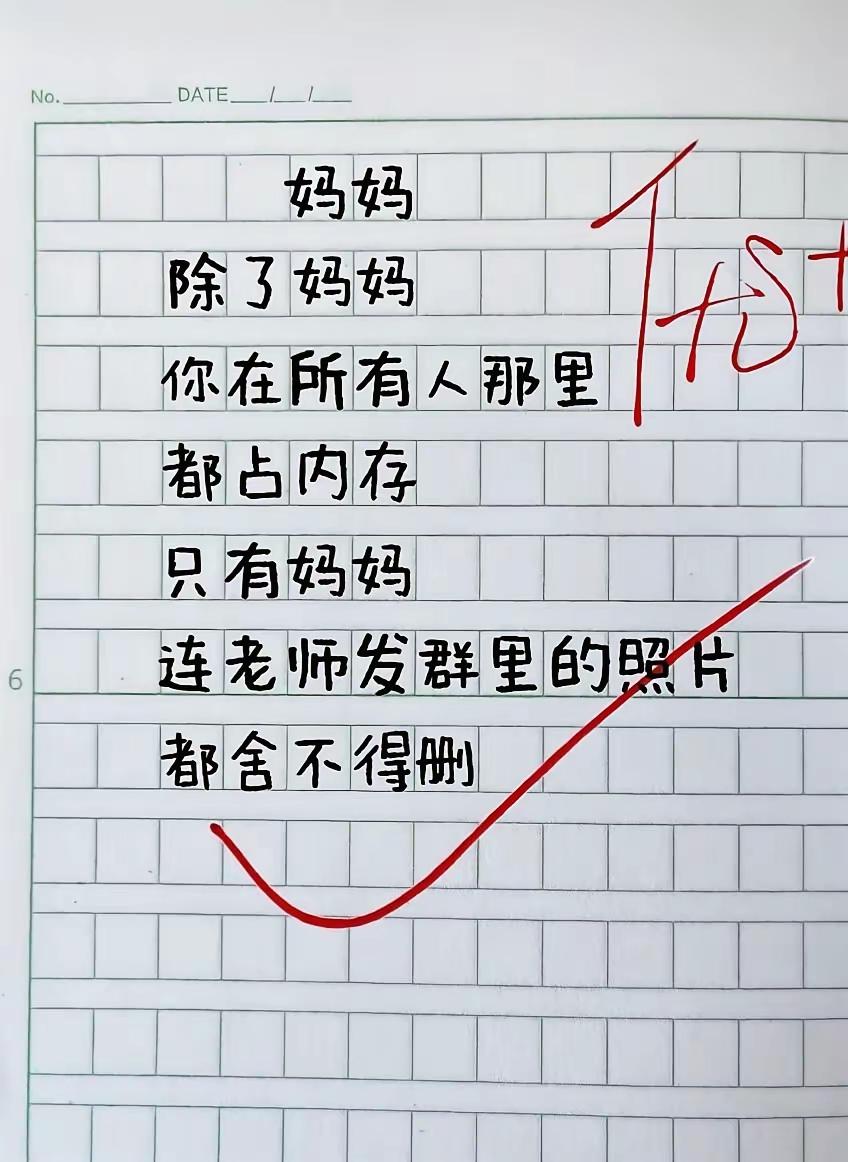 No. DATE / /
妈妈
除了妈妈
你在所有人那里
都占内存
只有妈妈
连老师发群里的照片
都舍不得删
6